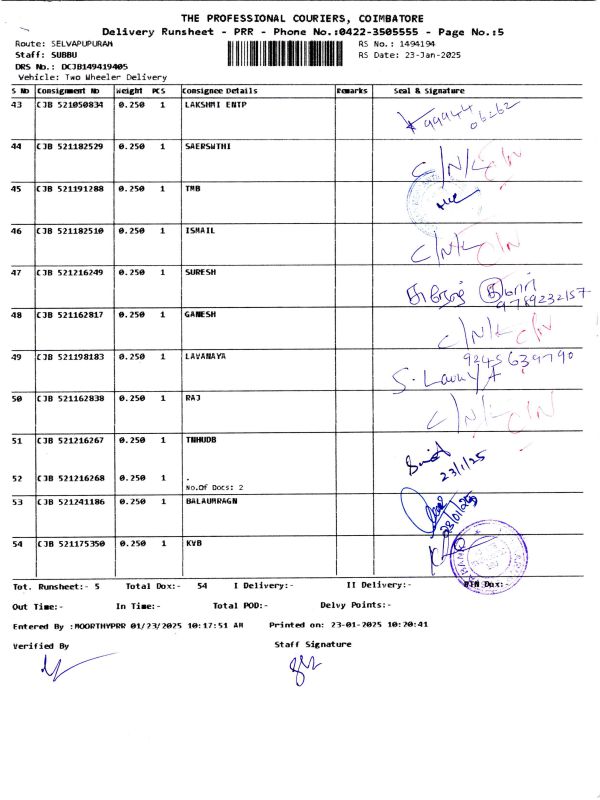 THE PROFESSIONAL COURIERS, COIMBATORE
Delivery Runsheet - PRR - Phone No.:0422-3505555 - Page No.:5
Route: SELVAPUPURAM RS No. : 1494194
Staff: SUBBU RS Date: 23-Jan-2025
DRS No.: DCJB149419405
Vehicle: Two Wheeler Delivery
S No Consignment No Weight PCS Consignee Details Remarks Seal & Signature
43 CJB 521050834 0.250 1 LAKSHMI ENTP 99944 06262
44 CJB 521182529 0.250 1 SAERSWTHI C/N/L C/N
45 CJB 521191288 0.250 1 TMB
46 CJB 521182510 0.250 1 ISMAIL C/N/L C/N
47 CJB 521216249 0.250 1 SURESH 9789232157
48 CJB 521162817 0.250 1 GANESH C/N/L C/N
49 CJB 521198183 0.250 1 LAVANAYA 9245639790
50 CJB 521162838 0.250 1 RAJ C/N/L C/N
51 CJB 521216267 0.250 1 TNHUDB 23/1/25
52 CJB 521216268 0.250 1 .
No.Of Docs: 2
53 CJB 521241186 0.250 1 BALAUMRAGN 23/01/25
54 CJB 521175350 0.250 1 KVB
Tot. Runsheet:- 5 Total Dox:- 54 I Delivery:- II Delivery:- Dox:-
Out Time:- In Time:- Total POD:- Delvy Points:-
Entered By :MOORTHYPRR 01/23/2025 10:17:51 AM Printed on: 23-01-2025 10:20:41
Verified By Staff Signature